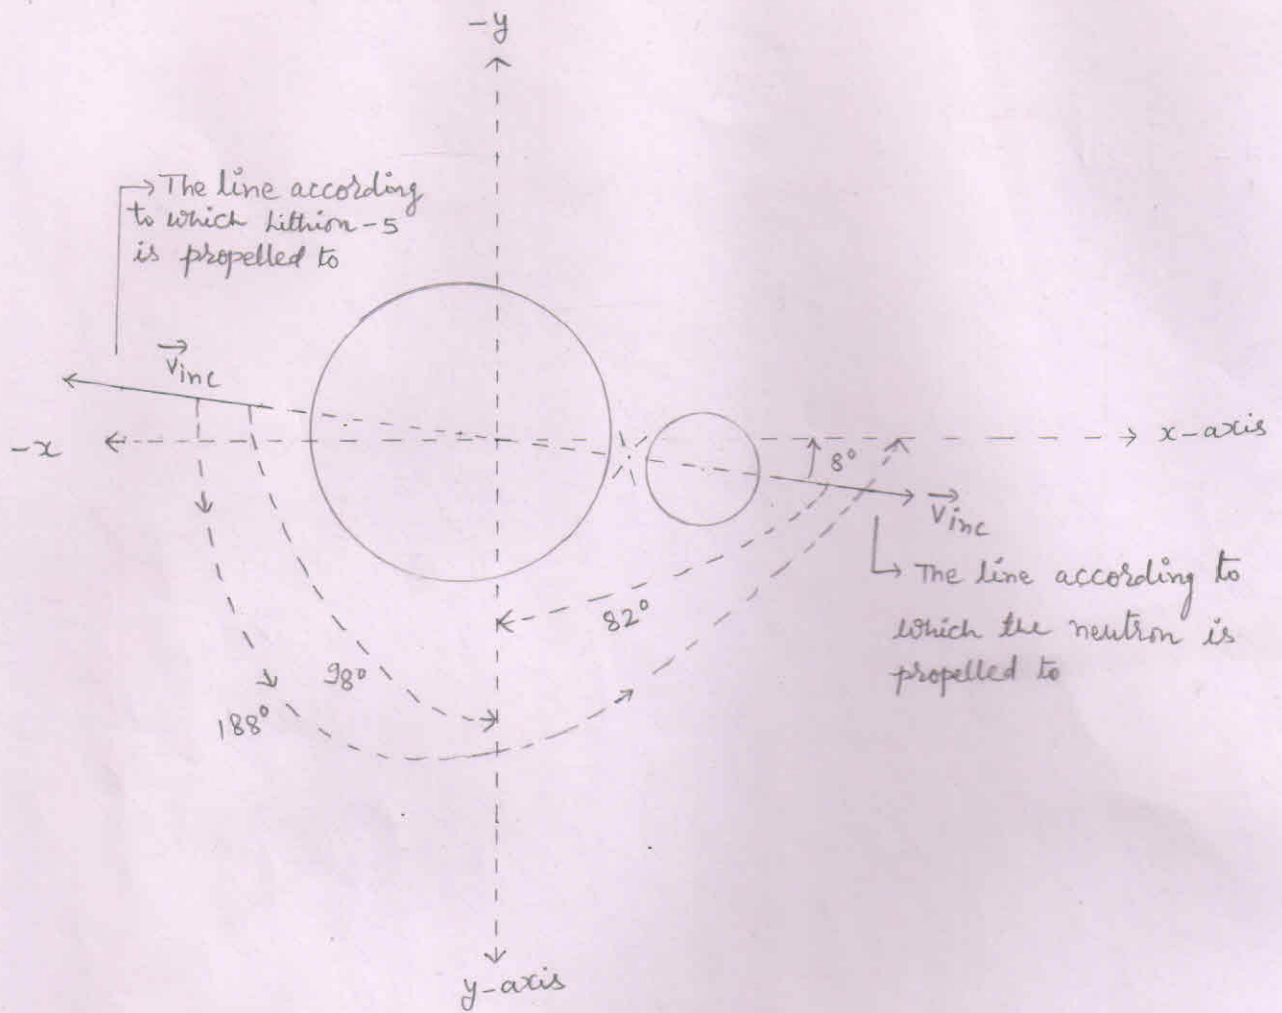 -y
→ The line according
to which Lithion-5
is propelled to
→
Vinc
-x
x-axis
8°
→
Vinc
→ The line according to
which the neutron is
propelled to
82°
98°
188°
y-axis